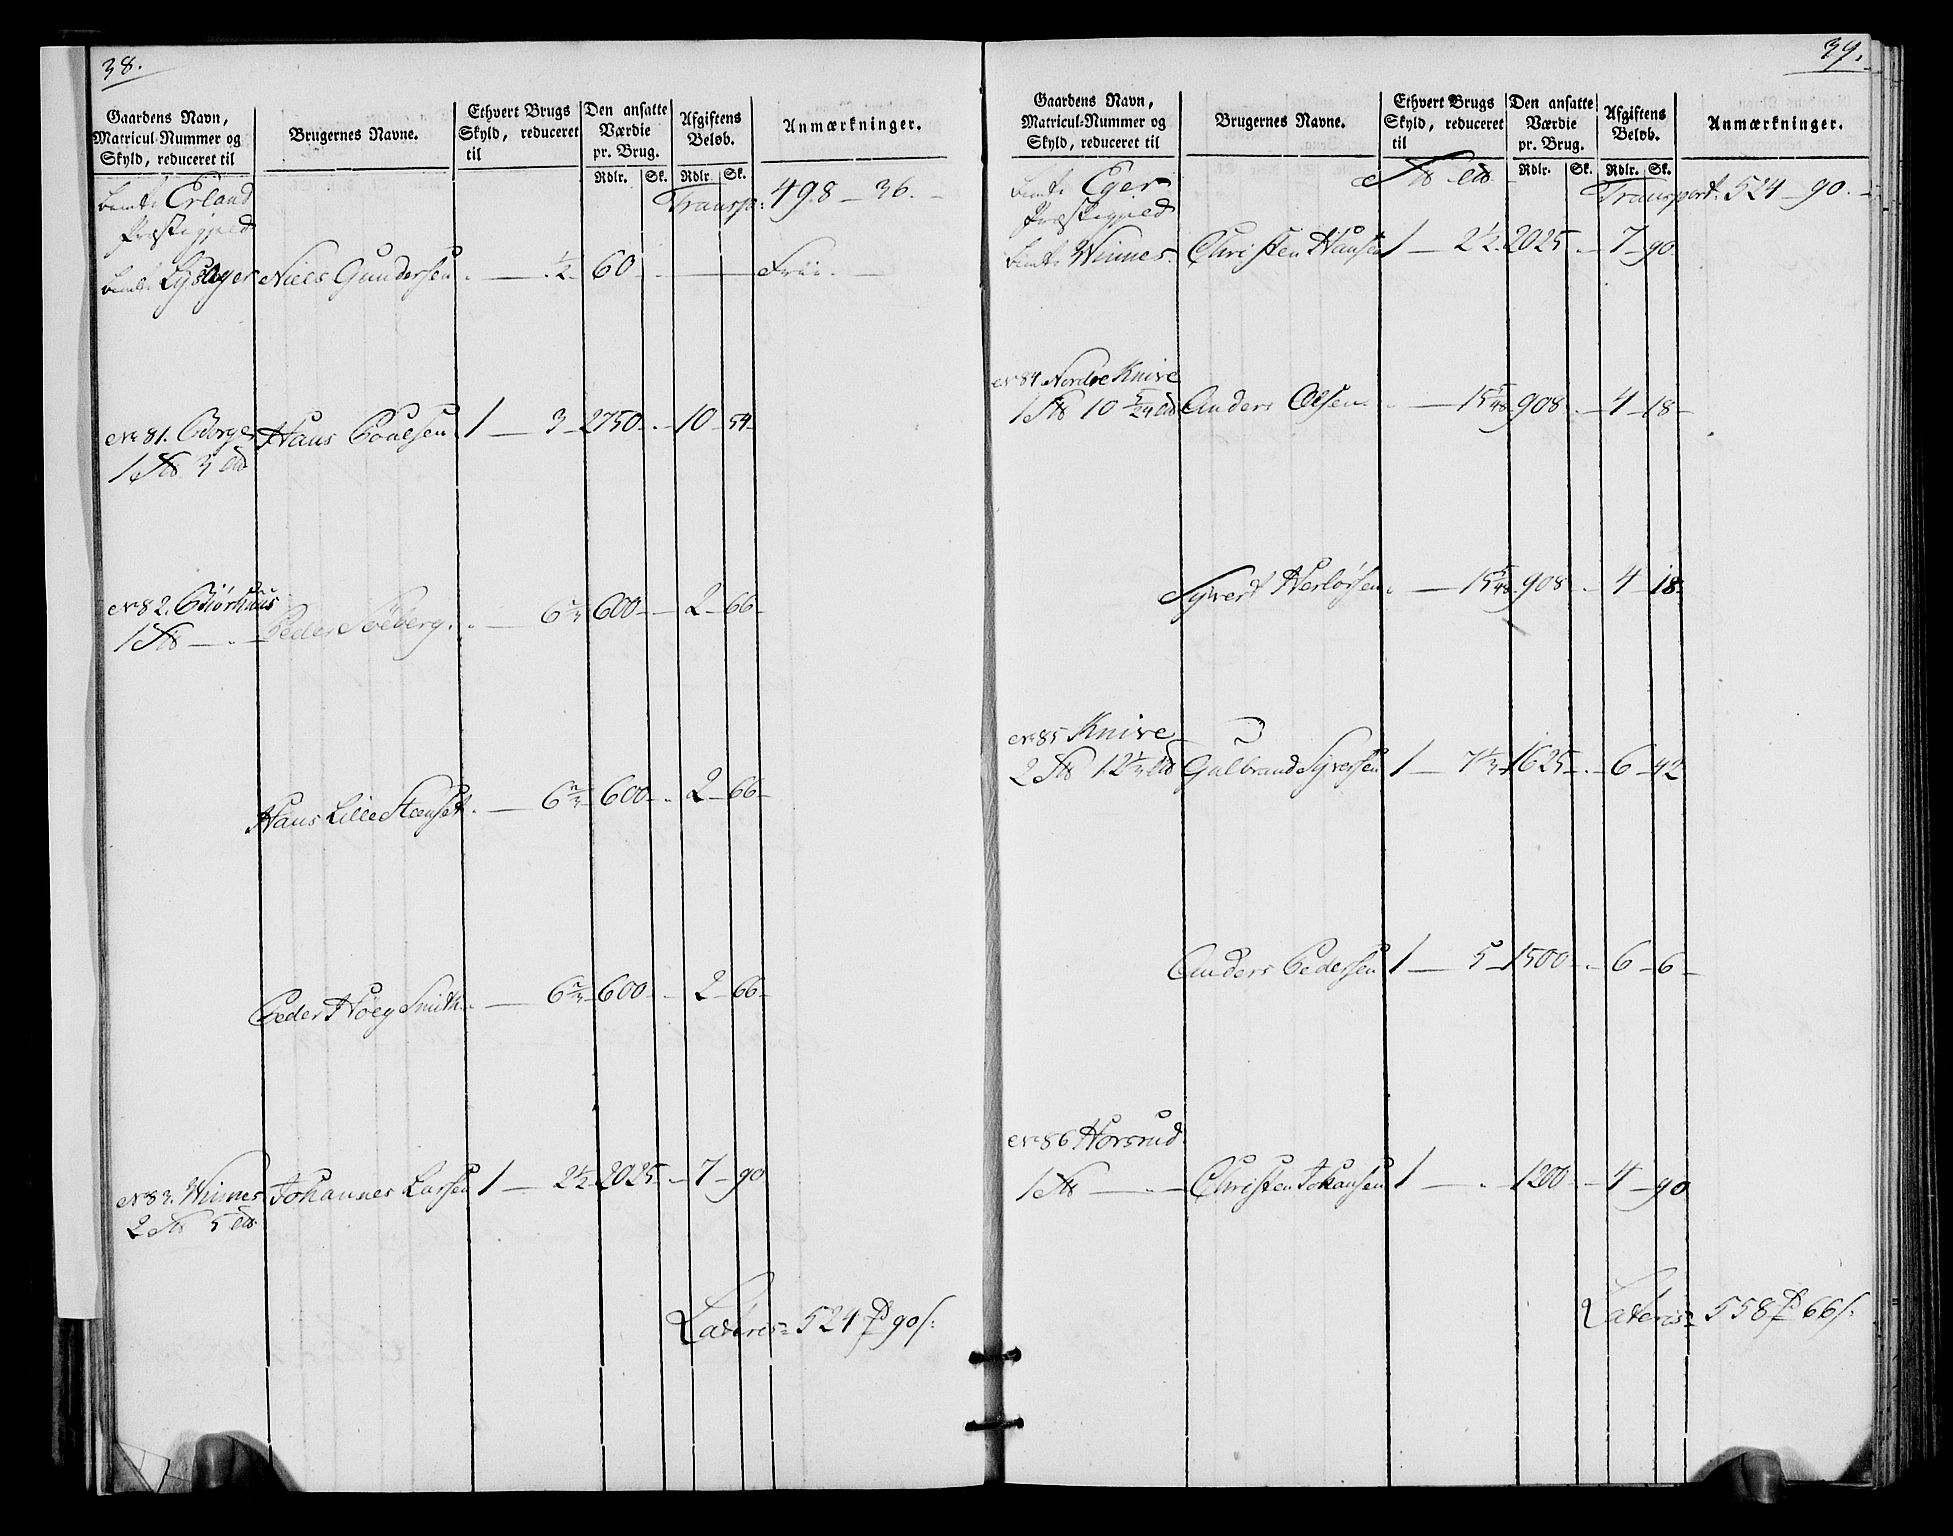 38.
Gaardens Navn,
Matricul-Nummer og
Skyld, reduceret til
Brugernes Navne.
Ethvert Brugs
Skyld, reduceret
til
Den ansatte
Værdie
pr. Brug.
Rdlr. Sk.
Afgiftens
Beløb.
Rdlr. Sk.
Anmærkninger.
Transp: 498 — 36. —
Præstegjeld
Niels Gundersen. — ½ 60 — Frii. —
No 81. Borge Hans Poulsen 1 — 3 — 2750 — 10 — 54
1 3
No 82. Giørhuus
1 — Peder Soeberg. — 6⅔ 600 — 2 — 66 —
Hans Lille Steenset. — 6⅔ 600 — 2 — 66 —
Peder Høeg Smith. — 6⅔ 600 — 2 — 66 —
No 83. Winnes Johannes Larsen 1 — 2½ 2025 — 7 — 90
2 5
Lateris 524 90
39.
Gaardens Navn,
Matricul-Nummer og
Skyld, reduceret til
Brugernes Navne.
Ethvert Brugs
Skyld, reduceret
til
Den ansatte
Værdie
pr. Brug.
Rdlr. Sk.
Afgiftens
Beløb.
Rdlr. Sk.
Anmærkninger.
Eger
Præstegjeld
Transport 524 — 90. —
Winnes. Christen Hansen 1 — 2½ 2025 — 7 — 90
No 84 Nordre Knive
1 10 5/24 Anders Olsen — 15 5/48 908 — 4 — 18 —
Syvert Herlofsen — 15 5/48 908 — 4 — 18
No 85 Knive
2 12⅓ Gulbrand Syversen 1 — 7⅓ 1625 — 6 — 42
Anders Pedersen 1 — 5 — 1500 — 6 — 6 —
No 86 Horsrud
1 — Christen Johansen 1 — 1200 — 4 — 90
Lateris 558 66